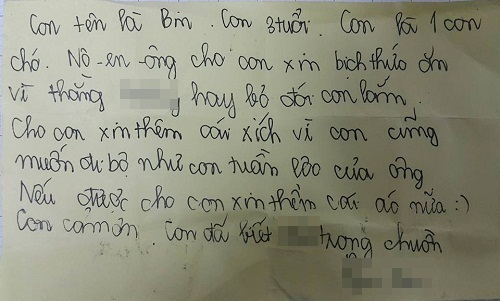 Con tên là Bin. Con 3 tuổi. Con là 1 con
chó. Nô-en-ông cho con xin bịch thức ăn
vì thằng hay bỏ đói con lắm,
Cho con xin thêm cái xích vì con cũng
muốn đi bộ như con tuần lộc của ông
Nếu được cho con xin thêm cái áo nữa :)
Con cảm ơn. Con đã biết trong chuồn